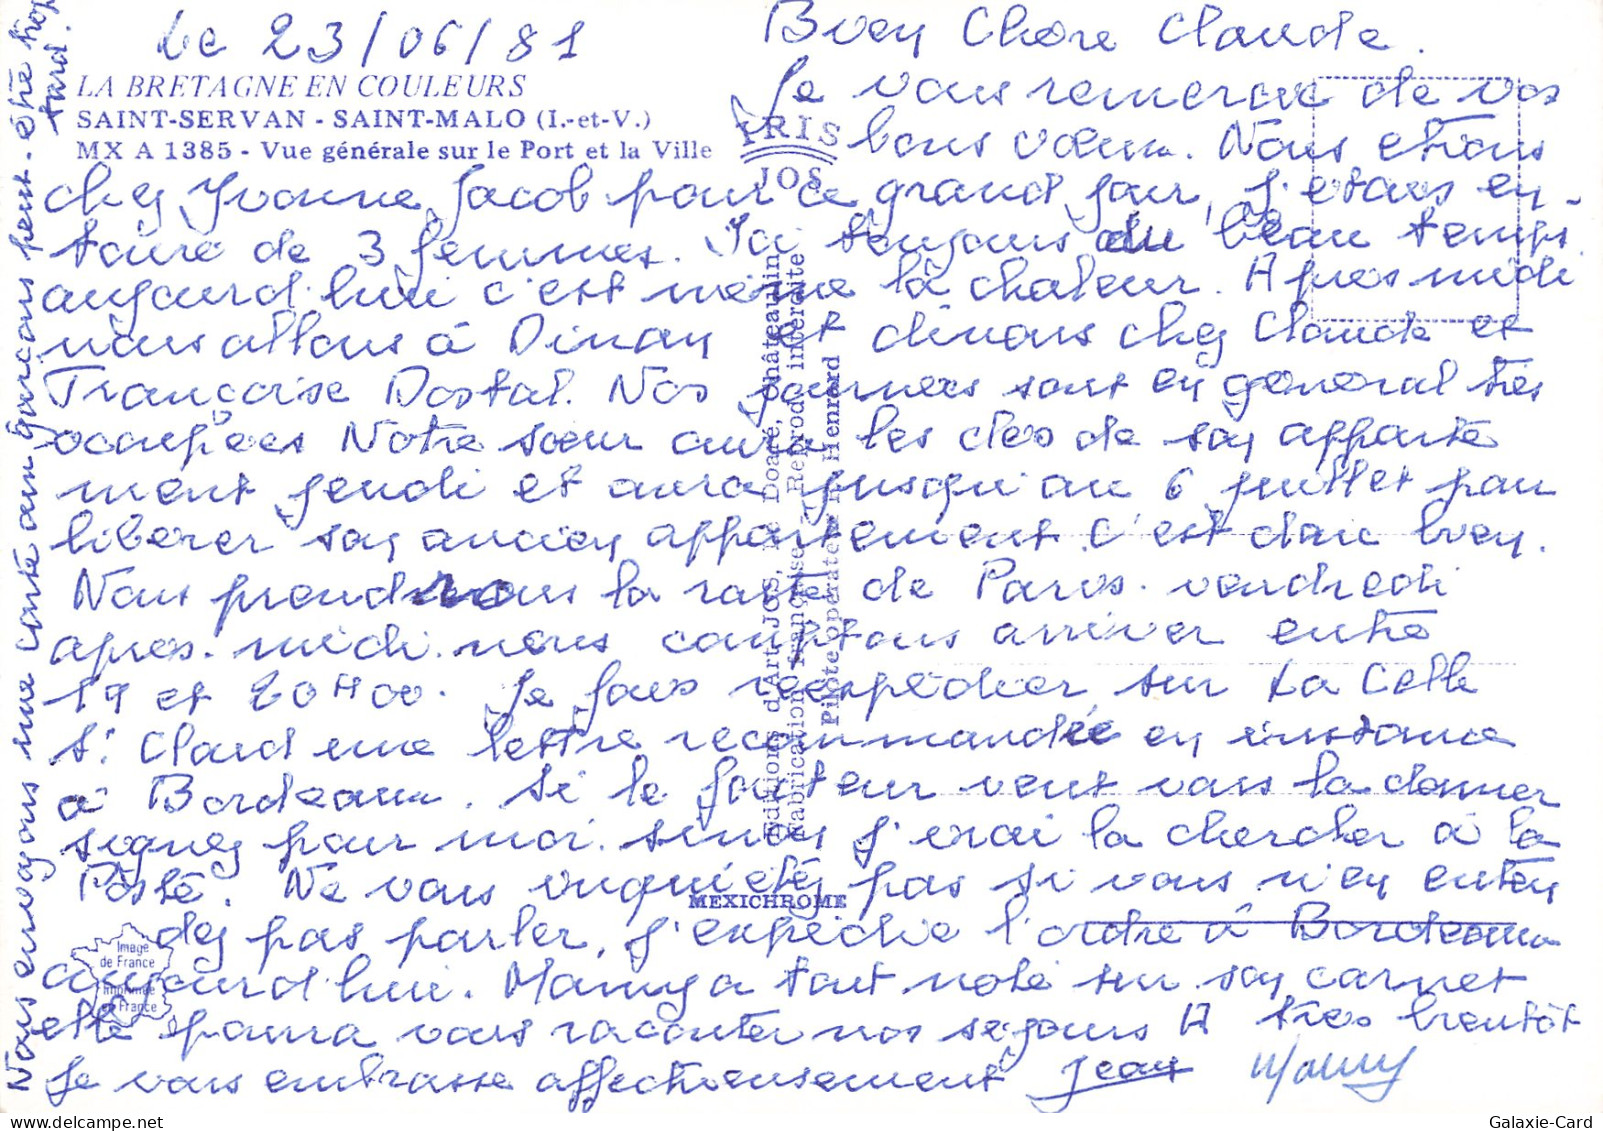 Le 23/06/81
Bien Chère Claude.
LA BRETAGNE EN COULEURS
SAINT-SERVAN - SAINT-MALO (I.-et-V.)
MX A 1385 - Vue générale sur le Port et la Ville
IRIS
JOS
Je vous remercie de vos
bons vœux. Nous étions
chez Yvonne Jacob pour ce grand jour, j'étais en-
touré de 3 femmes. Ici toujours du beau temps
aujourd'hui c'est même la chaleur. Après midi
nous allons à Dinan et dinons chez Claude et
Françoise Dostal. Nos journées sont en général très
occupées Notre sœur aura les clés de son apparte
ment jeudi et aura jusqu'au 6 juillet pour
libérer son ancien appartement. C'est donc bien.
Nous prendrons la route de Paris. vendredi
après-midi. nous comptons arriver entre
19 et 20H00. Je fais réexpédier sur La Celle
St Cloud une lettre recommandée en instance
à Bordeaux. Si le facteur veut vous la donner
signez pour moi. sinon j'irai la chercher à la
Poste. Ne vous inquiétez pas si vous n'en enten
dez pas parler, j'expédie l'ordre à Bordeaux
aujourd'hui. Mamy a tout noté sur son carnet
elle pourra vous raconter nos séjours A très bientôt
Je vous embrasse affectueusement Jean Mamy
Nous envoyons une carte aux garçons peut-être trop
tard.
Editions d'Art JOS, Le Doaré, Châteaulin
Fabrication Française - Reprod. interdite
Pilote opérateur R. Henrard
MEXICHROME
Image
de France
Imprimée
en France
Galaxie-Card.com